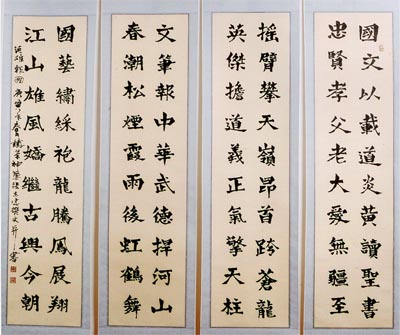 國文以載道炎黃讀聖書
忠賢孝父老大愛無疆至
搖臂攀天嶺昂首跨蒼龍
英傑擔道義正氣擎天柱
文筆報中華武德捍河山
春潮松煙霞雨後虹鶴舞
國藝繡綵袍龍騰鳳展翔
江山雄風嬌繼古興今朝
英雄報國 庚寅年春 撰文并書